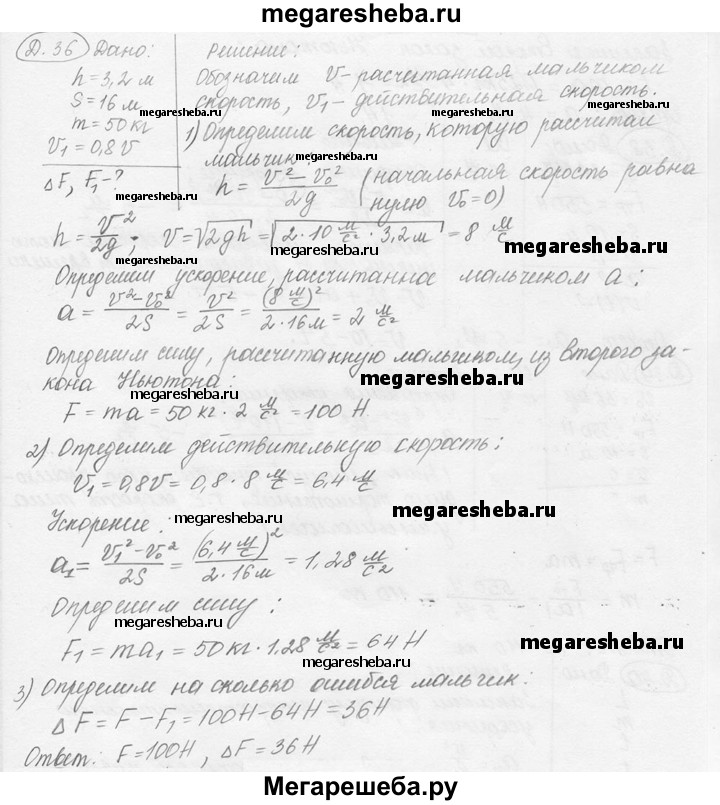 megaresheba.ru
Д.36 Дано: Решение:
h = 3,2 м Обозначим v - расчитанная мальчиком
S = 16 м скорость, v₁ - действительная скорость.
megaresheba.ru megaresheba.ru
m = 50 кг 1) Определим скорость, которую рассчитал
v₁ = 0,8 v мальчик: megaresheba.ru
ΔF, F₁ - ? h = (v² - v₀²)/2g (начальная скорость равна
megaresheba.ru нулю v₀ = 0)
h = v²/2g ; v = √2gh = √(2 · 10 м/с² · 3,2 м) = 8 м/с
megaresheba.ru megaresheba.ru
Определим ускорение, рассчитанное мальчиком a:
a = (v² - v₀²)/2S = v²/2S = (8 м/с)²/(2 · 16 м) = 2 м/с²
megaresheba.ru
Определим силу, рассчитанную мальчиком, из второго за-
кона Ньютона: megaresheba.ru
F = ma = 50 кг · 2 м/с² = 100 Н.
2) Определим действительную скорость:
megaresheba.ru
v₁ = 0,8v = 0,8 · 8 м/с = 6,4 м/с
megaresheba.ru
Ускорение: megaresheba.ru
a₁ = (v₁² - v₀²)/2S = (6,4 м/с)²/(2 · 16 м) = 1,28 м/с²
Определим силу:
megaresheba.ru
F₁ = ma₁ = 50 кг · 1,28 м/с² = 64 Н
megaresheba.ru
megaresheba.ru
3) Определим на сколько ошибся мальчик:
ΔF = F - F₁ = 100Н - 64 Н = 36 Н
megaresheba.ru
Ответ: F = 100 Н, ΔF = 36 Н
Мегарешеба.ру